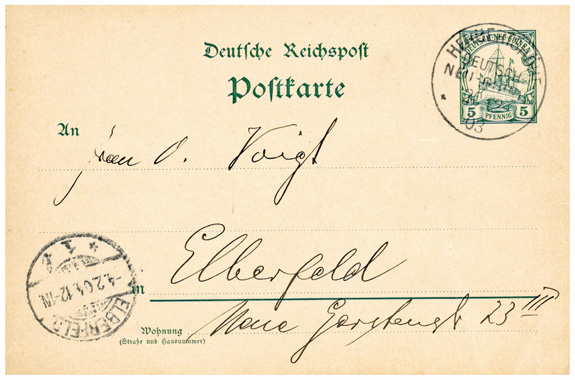 Deutsche Reichspost
Postkarte
HERBERTSHÖHE
DEUTSCH
NEU-GUINEA
03
5 PFENNIG 5
An
Frau O. Voigt
in Elberfeld
ELBERFELD
4.2.04.12-1N
1
Wohnung
(Straße und Hausnummer)
Neue Gerstenstr 23 III